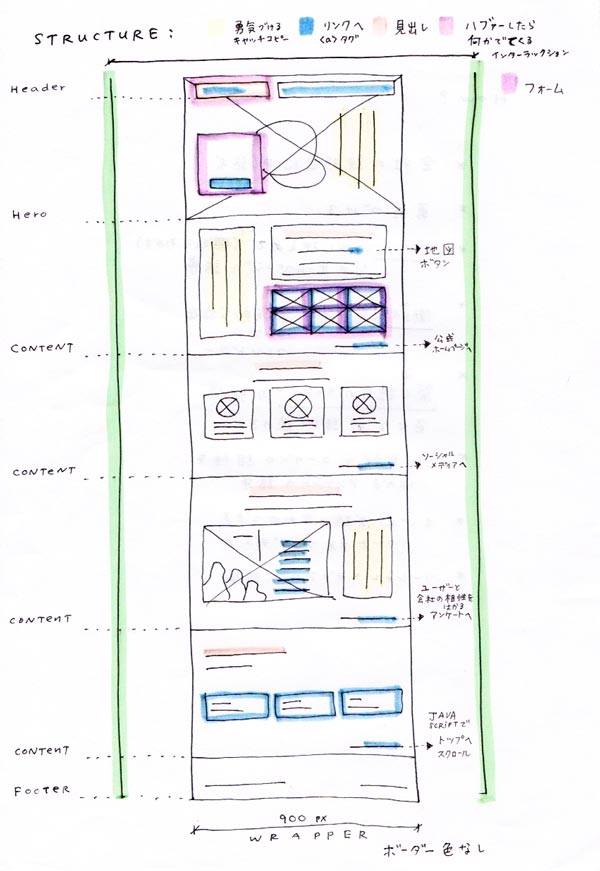 STRUCTURE:
勇気づける
キャッチコピー
リンクへ
<a>タグ
見出し
ハブァーしたら
何かがでてくる
インターラックション
フォーム
Header
Hero
地図
ボタン
公式
ホームページへ
CONTENT
ソーシャル
メディアへ
CONTENT
ユーザーと
会社の相性を
はかる
アンケートへ
CONTENT
JAVA
SCRIPTで
トップへ
スクロール
CONTENT
FOOTER
900 PX
WRAPPER
ボーダー色なし